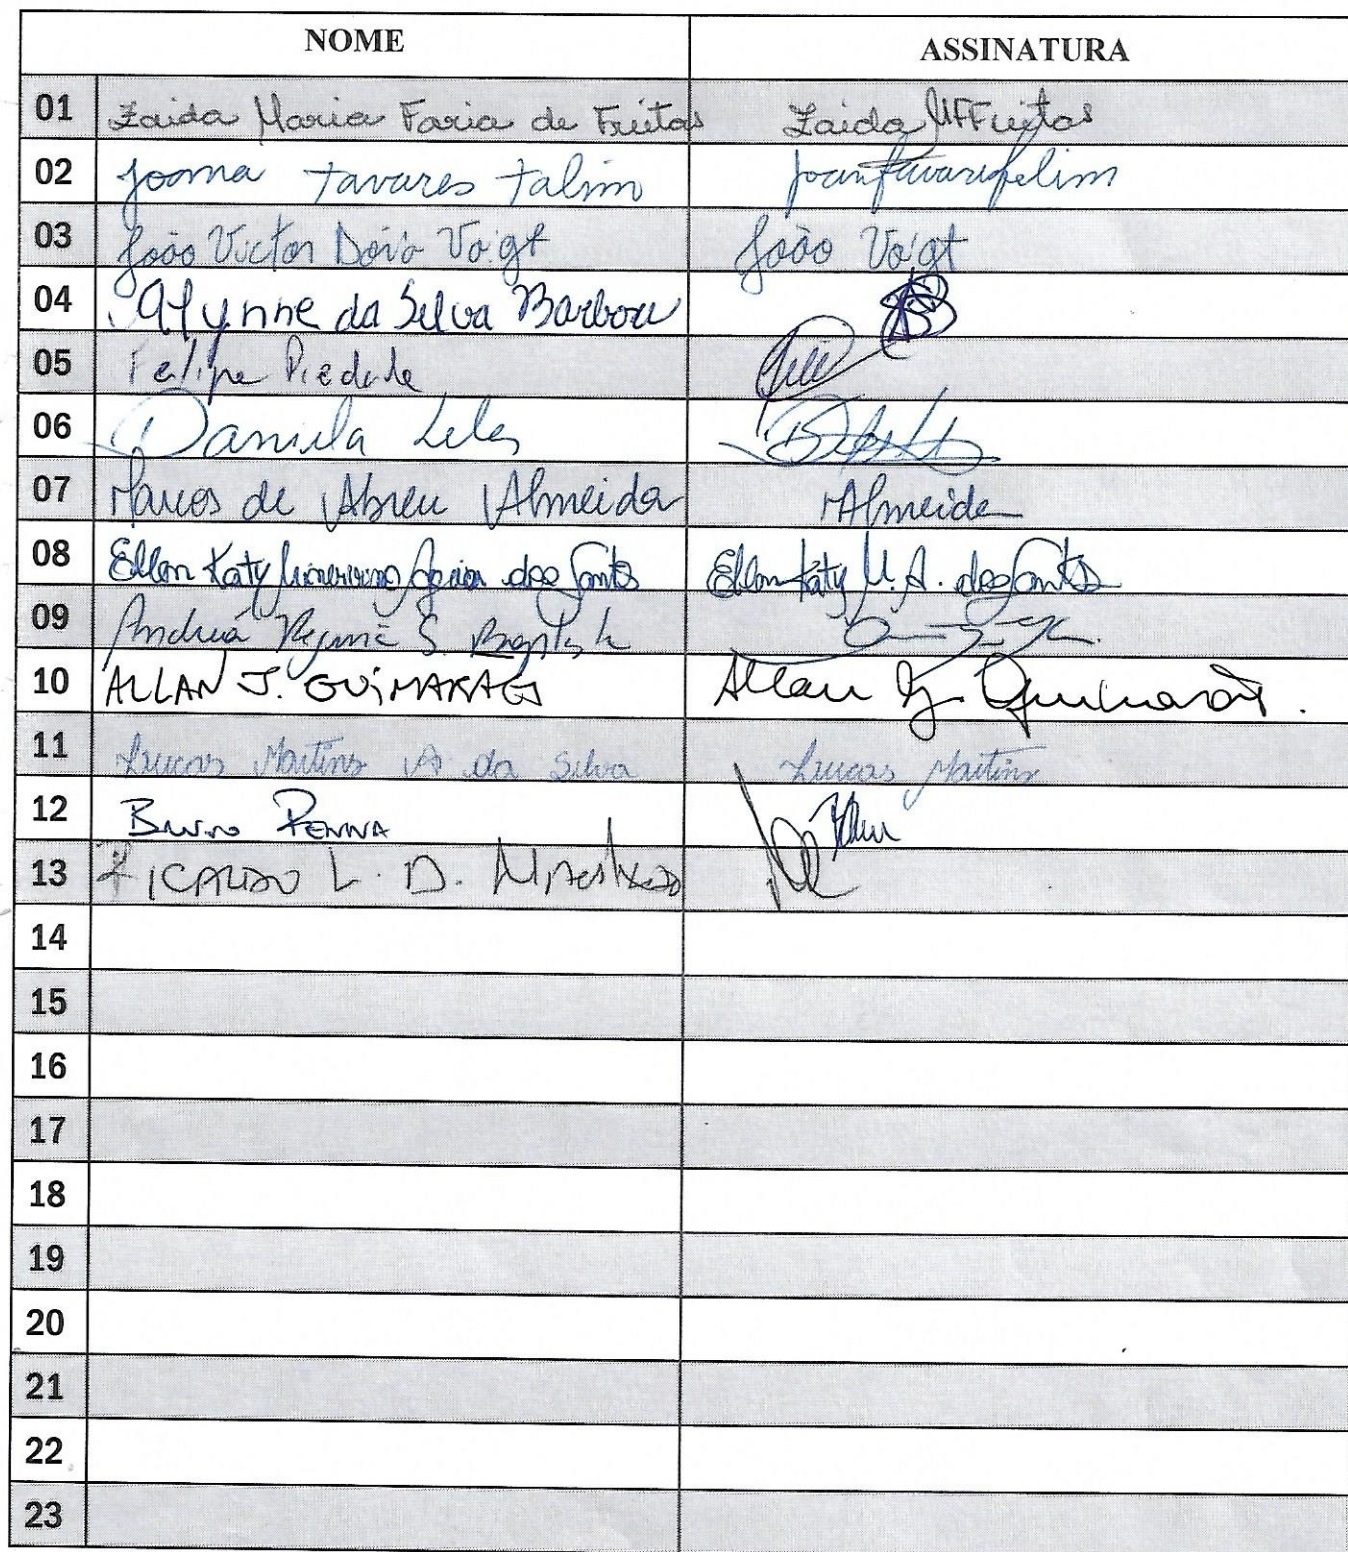 NOME ASSINATURA
01 Zaida Maria Faria de Freitas Zaida MFFreitas
02 Joana Tavares Talim
03 João Victor Voigt João Voigt
04 da Silva Barbosa
05 Felipe Piedade
06 Daniela Leles
07 Marcos de Abreu Almeida MAlmeida
08 Ellen Katy dos Santos Ellen Katy M. A. dos Santos
09 S.
10 ALLAN J. GUIMARAES Allan J. Guimarães.
11 Lucas Martins A da Silva Lucas Martins
12 BRUNO PENNA
13 RICARDO L. D. MACHADO
14
15
16
17
18
19
20
21
22
23